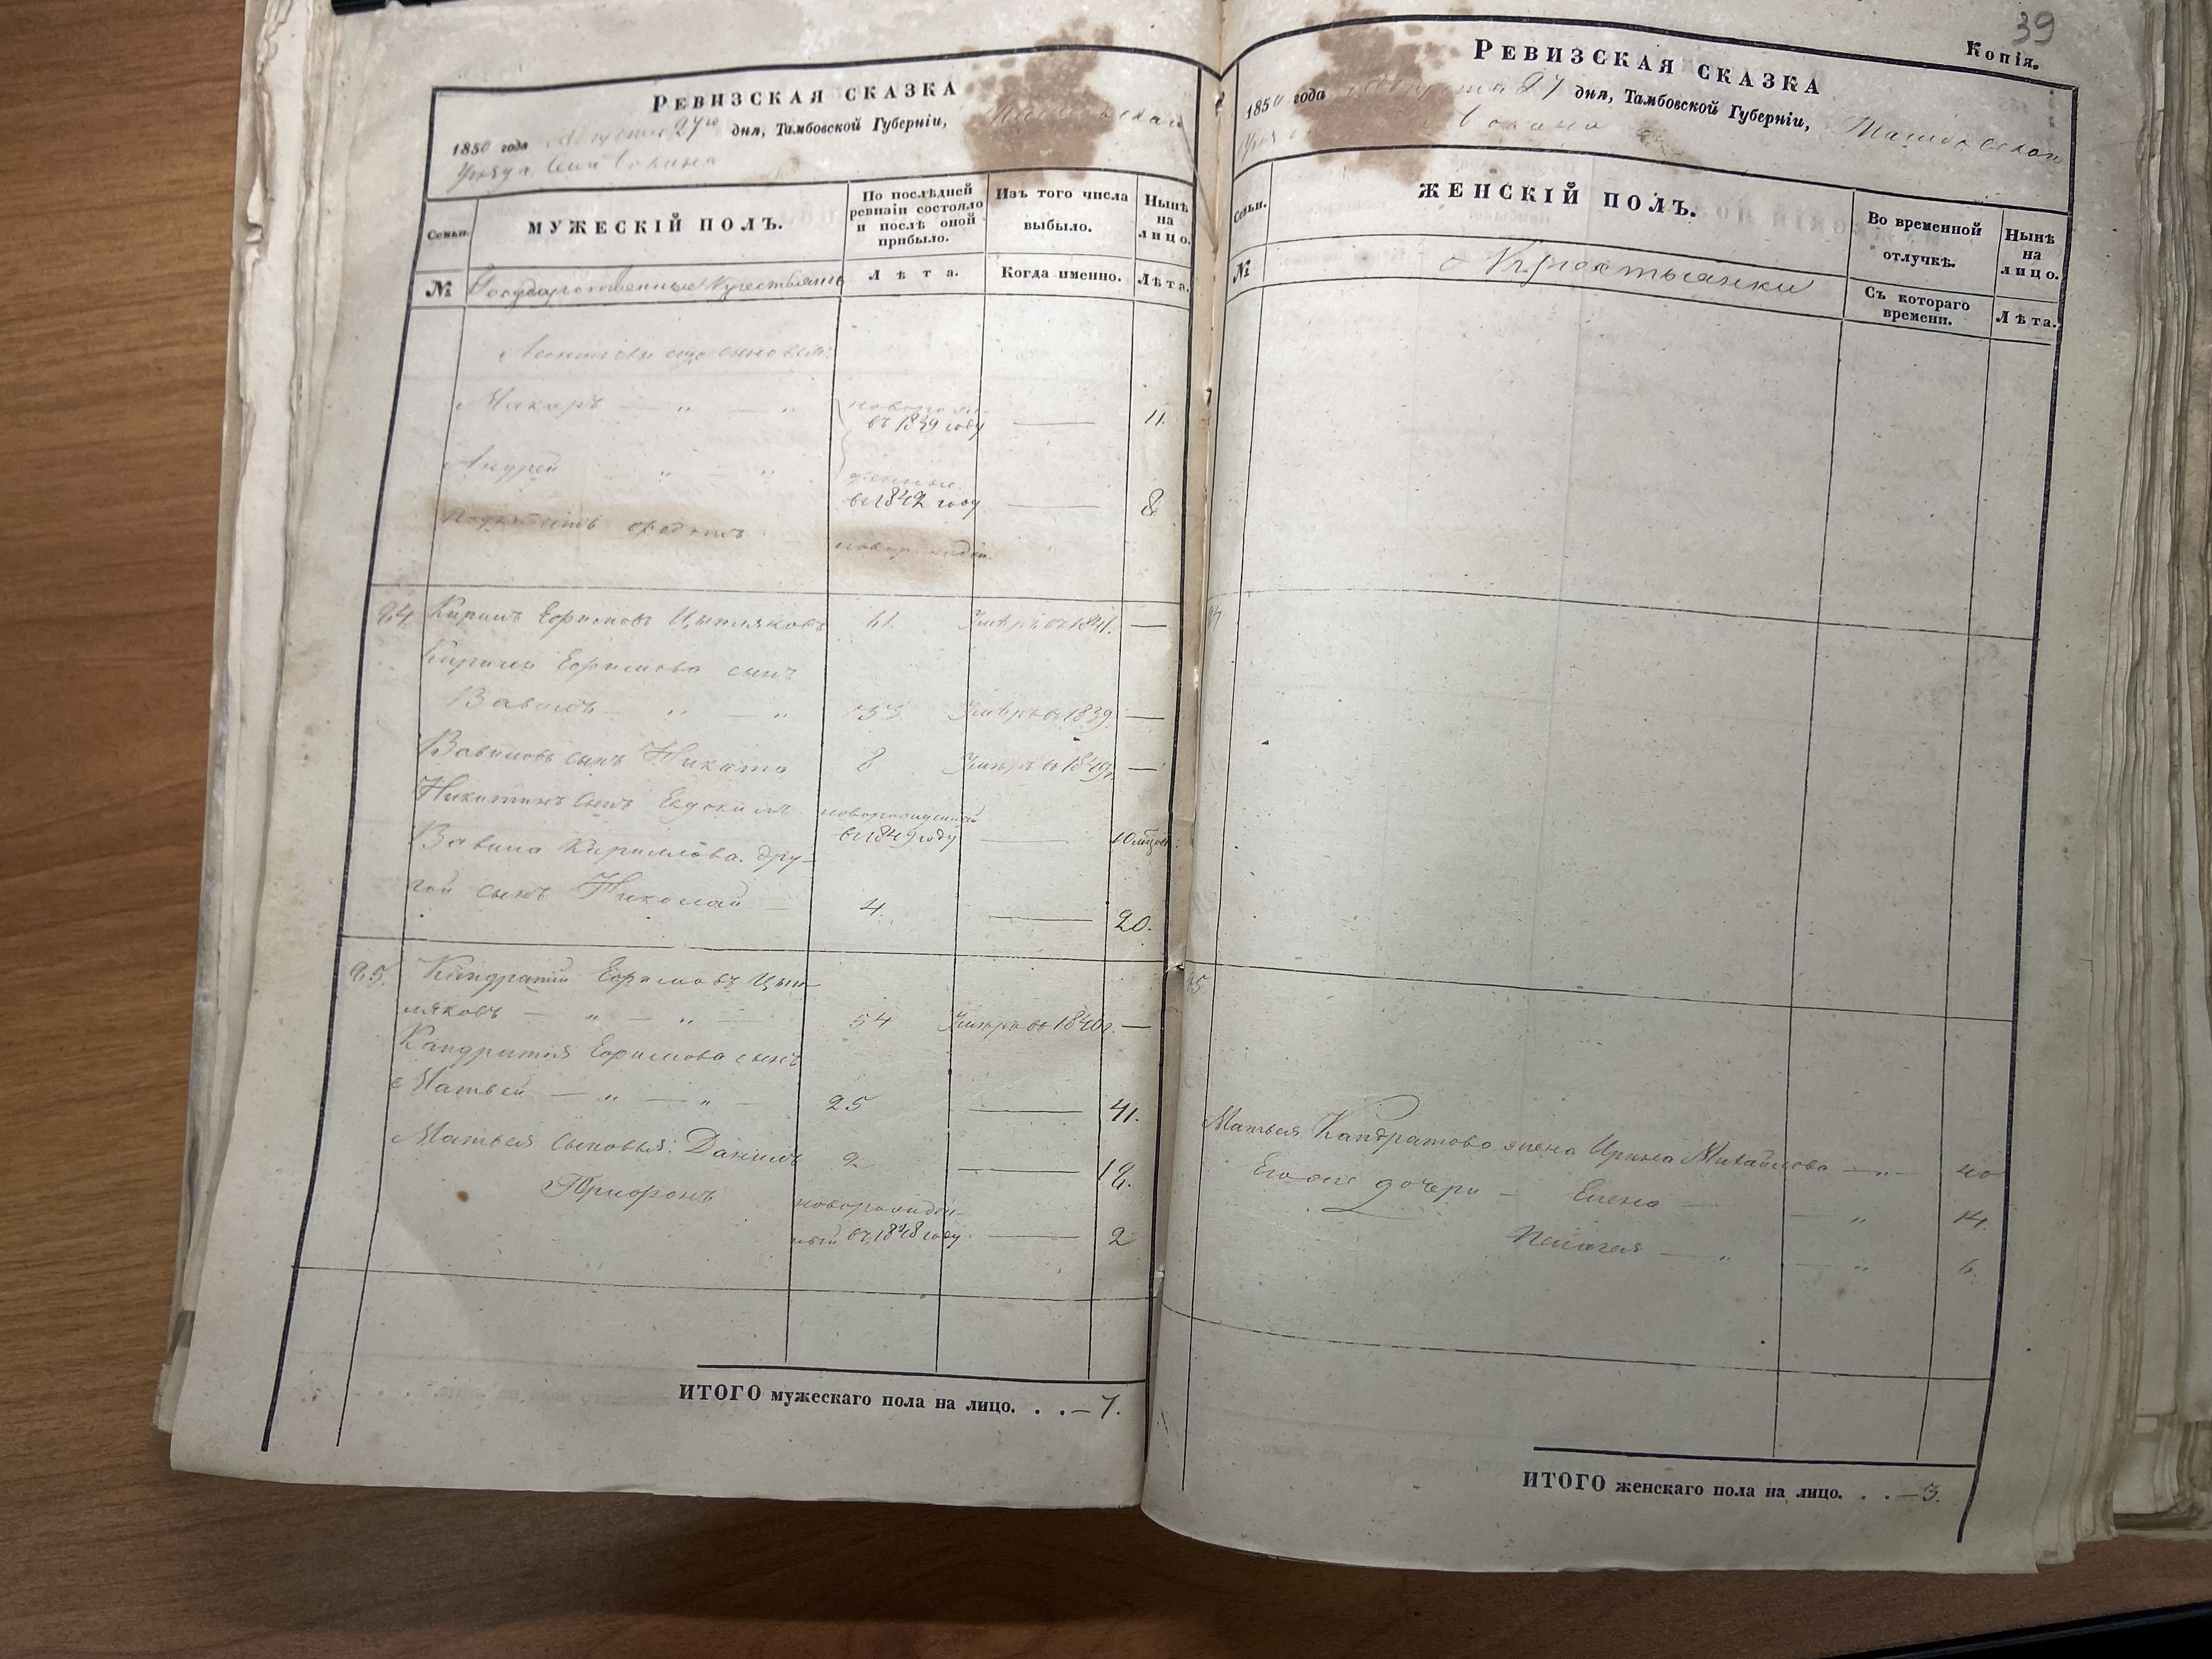 39
Копія.
Ревизская сказка
1850 года Августа 27го дня, Тамбовской Губерніи,
Уѣзда Села
Семьи.
МУЖЕСКІЙ ПОЛЪ.
По послѣдней ревизіи состояло и послѣ оной прибыло.
Изъ того числа выбыло.
Нынѣ на лицо.
№
Государственные Крестьяне
Лѣта.
Когда именно.
Лѣта.
Леонтьевы сыновья:
Макаръ — „ — „ въ 1839 году — 11.
Андрей „ — „
въ 1842 году — 8
24. Кирилъ Ефимовъ Цыпляковъ 61. Умеръ въ 1841. —
Кирилы Ефимова сынъ
Вавилъ — „ — „ 33 Умеръ въ 1839 —
Вавиловъ сынъ Никита 8 Умеръ въ 1849г. —
Никитинъ сынъ Евдокимъ новорожденный
въ 1849 году — 10 мѣсяц.
Вавила Кирилова дру-
гой сынъ Николай — 4. — 20.
25. Кандратій Ефимовъ Цып-
ляковъ — „ — „ — 54 Умеръ въ 1840г. —
Кандратія Ефимова сынъ
Матвей — „ — „ — 25 — 41.
Матвея сыновья: Данилъ 2 — 18.
Трифонъ новорожден-
ный въ 1848 году — 2
ИТОГО мужескаго пола на лицо. . . — 7.
Ревизская сказка
1850 года Августа 27 дня, Тамбовской Губерніи, Тамбовскаго
Семьи.
ЖЕНСКІЙ ПОЛЪ.
Во временной отлучкѣ.
Нынѣ на лицо.
№
Крестьянки
Съ котораго времени.
Лѣта.
25
Матвея Кандратова жена Ирина Михайлова — „ — 40
Его же дочери — Елена — — „ 14.
Пелагея — „ — „ 6.
ИТОГО женскаго пола на лицо. . . — 3.